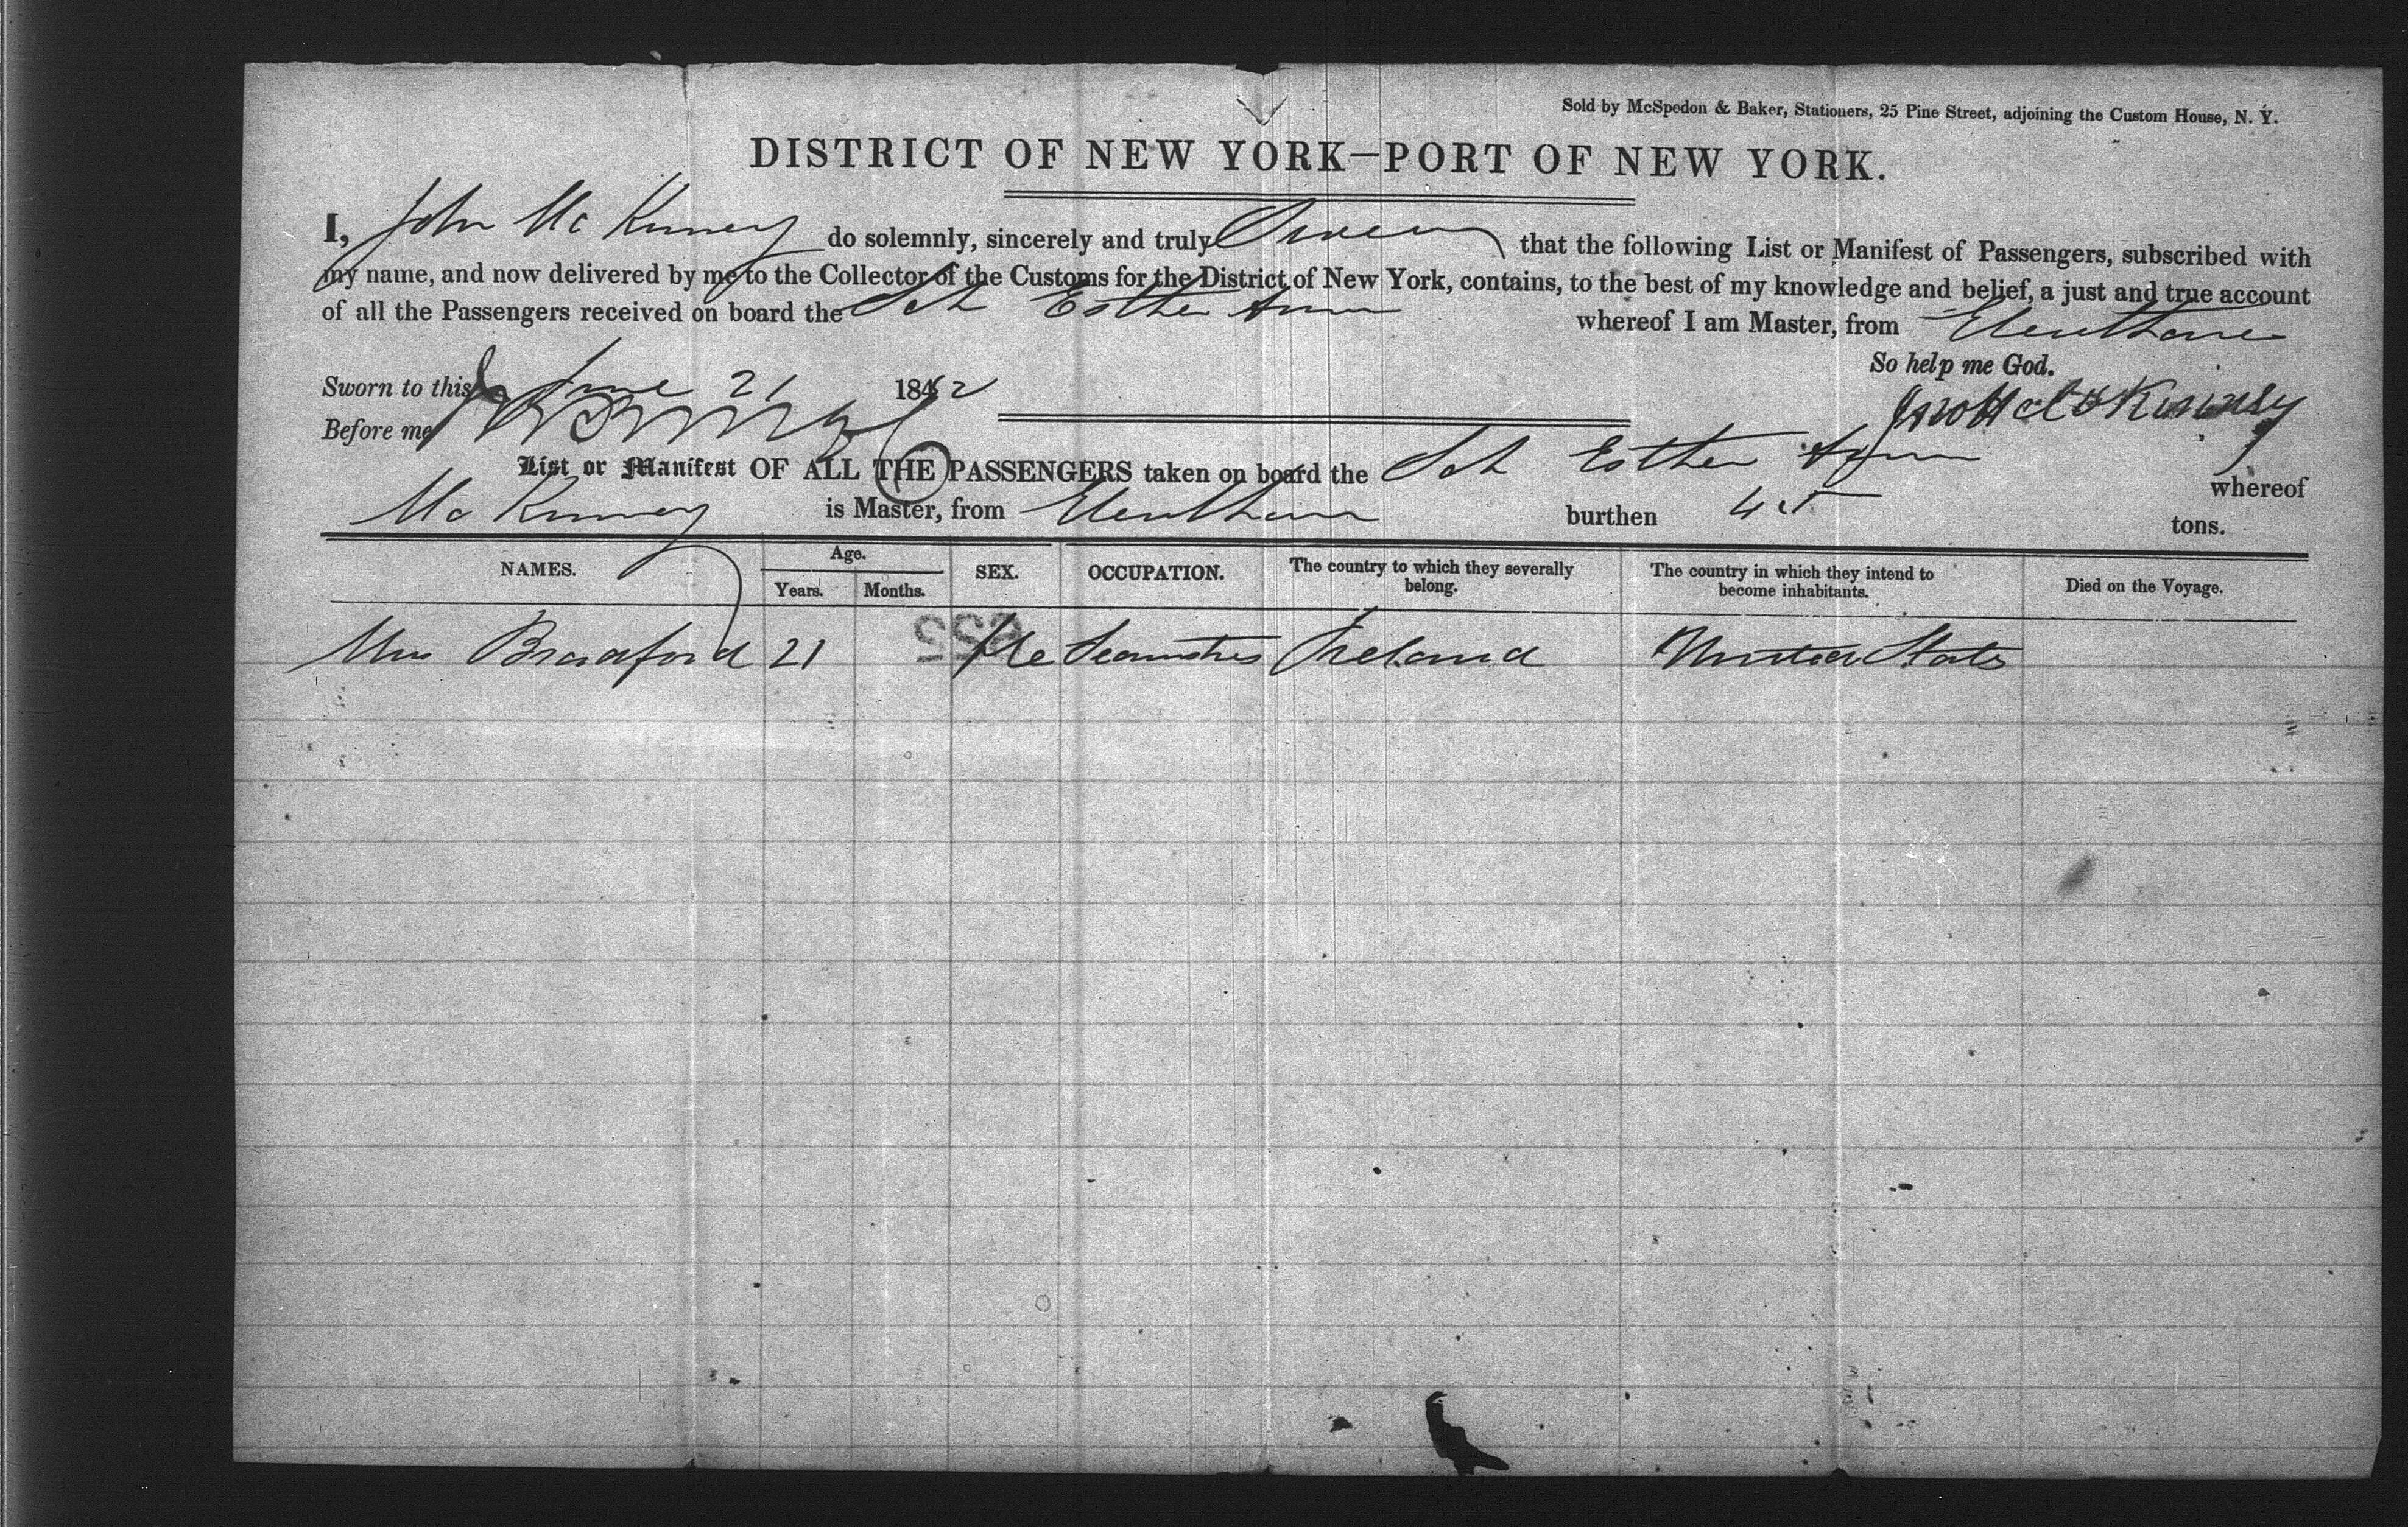 Sold by McSpedon & Baker, Stationers, 25 Pine Street, adjoining the Custom House, N. Y.
DISTRICT OF NEW YORK—PORT OF NEW YORK.
I, John McKinney do solemnly, sincerely and truly Swear that the following List or Manifest of Passengers, subscribed with
my name, and now delivered by me to the Collector of the Customs for the District of New York, contains, to the best of my knowledge and belief, a just and true account
of all the Passengers received on board the Sch Esther Ann whereof I am Master, from Eleuthera
So help me God.
Sworn to this June 21 18 2
Before me
Jno McKinney
List or Manifest OF ALL THE PASSENGERS taken on board the Sch Esther Ann whereof
McKinney is Master, from Eleuthera burthen 45 tons.
NAMES. Age. Years. Months. SEX. OCCUPATION. The country to which they severally belong. The country in which they intend to become inhabitants. Died on the Voyage.
Bradford 21 Fle Seamstres Ireland United States